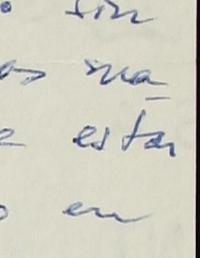 sin
as ma
estar
o en